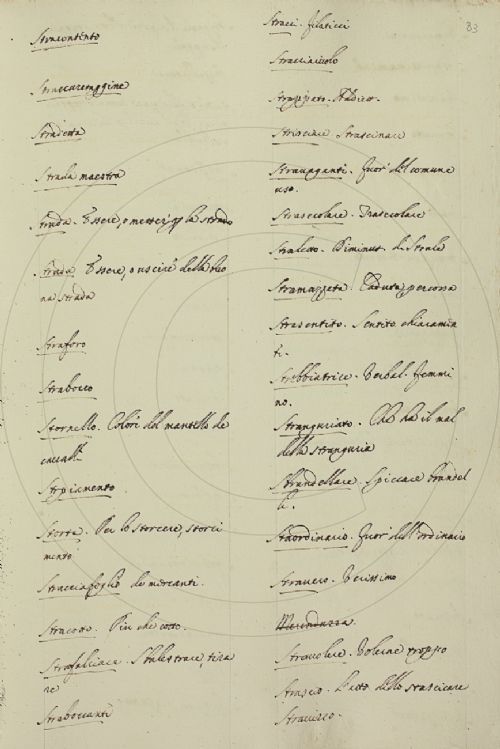 Stracontento
Straccurataggine
Stradetta
Strada maestra
Strada. Essere, o metter per la strada
Strada. Essere, o uscire della buo
na strada
Straforo
Strabocco
Stornello. Colori del mantello de
cavalli
Storpiamento
Storta. Per lo storcere, storci
mento
Stracciafoglio de mercanti.
Stracotto. Più che cotto.
Strafalciare. tira
re
Straboccanti
83
Stracci. filaticci
Stracciaiuolo
Strappato. Addiet.
Strisciare Strascinare
Stravaganti. fuor' del comune
uso.
Strasecolare. Trasecolare
Straletto. Diminut. di Strale
Stramazzata. Caduta, percossa
Strasentito. Sentito chiaramen
te.
Stribbiatrice. Verbal. femmi
no.
Stranguriato. Che ha il mal
della stranguria
Strambellare. Spiccare brandel
li.
Straordinario. fuor' dell'ordinario
Stravero. Verissimo
Stravolere. Volerne troppo
Strascio. L'atto dello strascicare